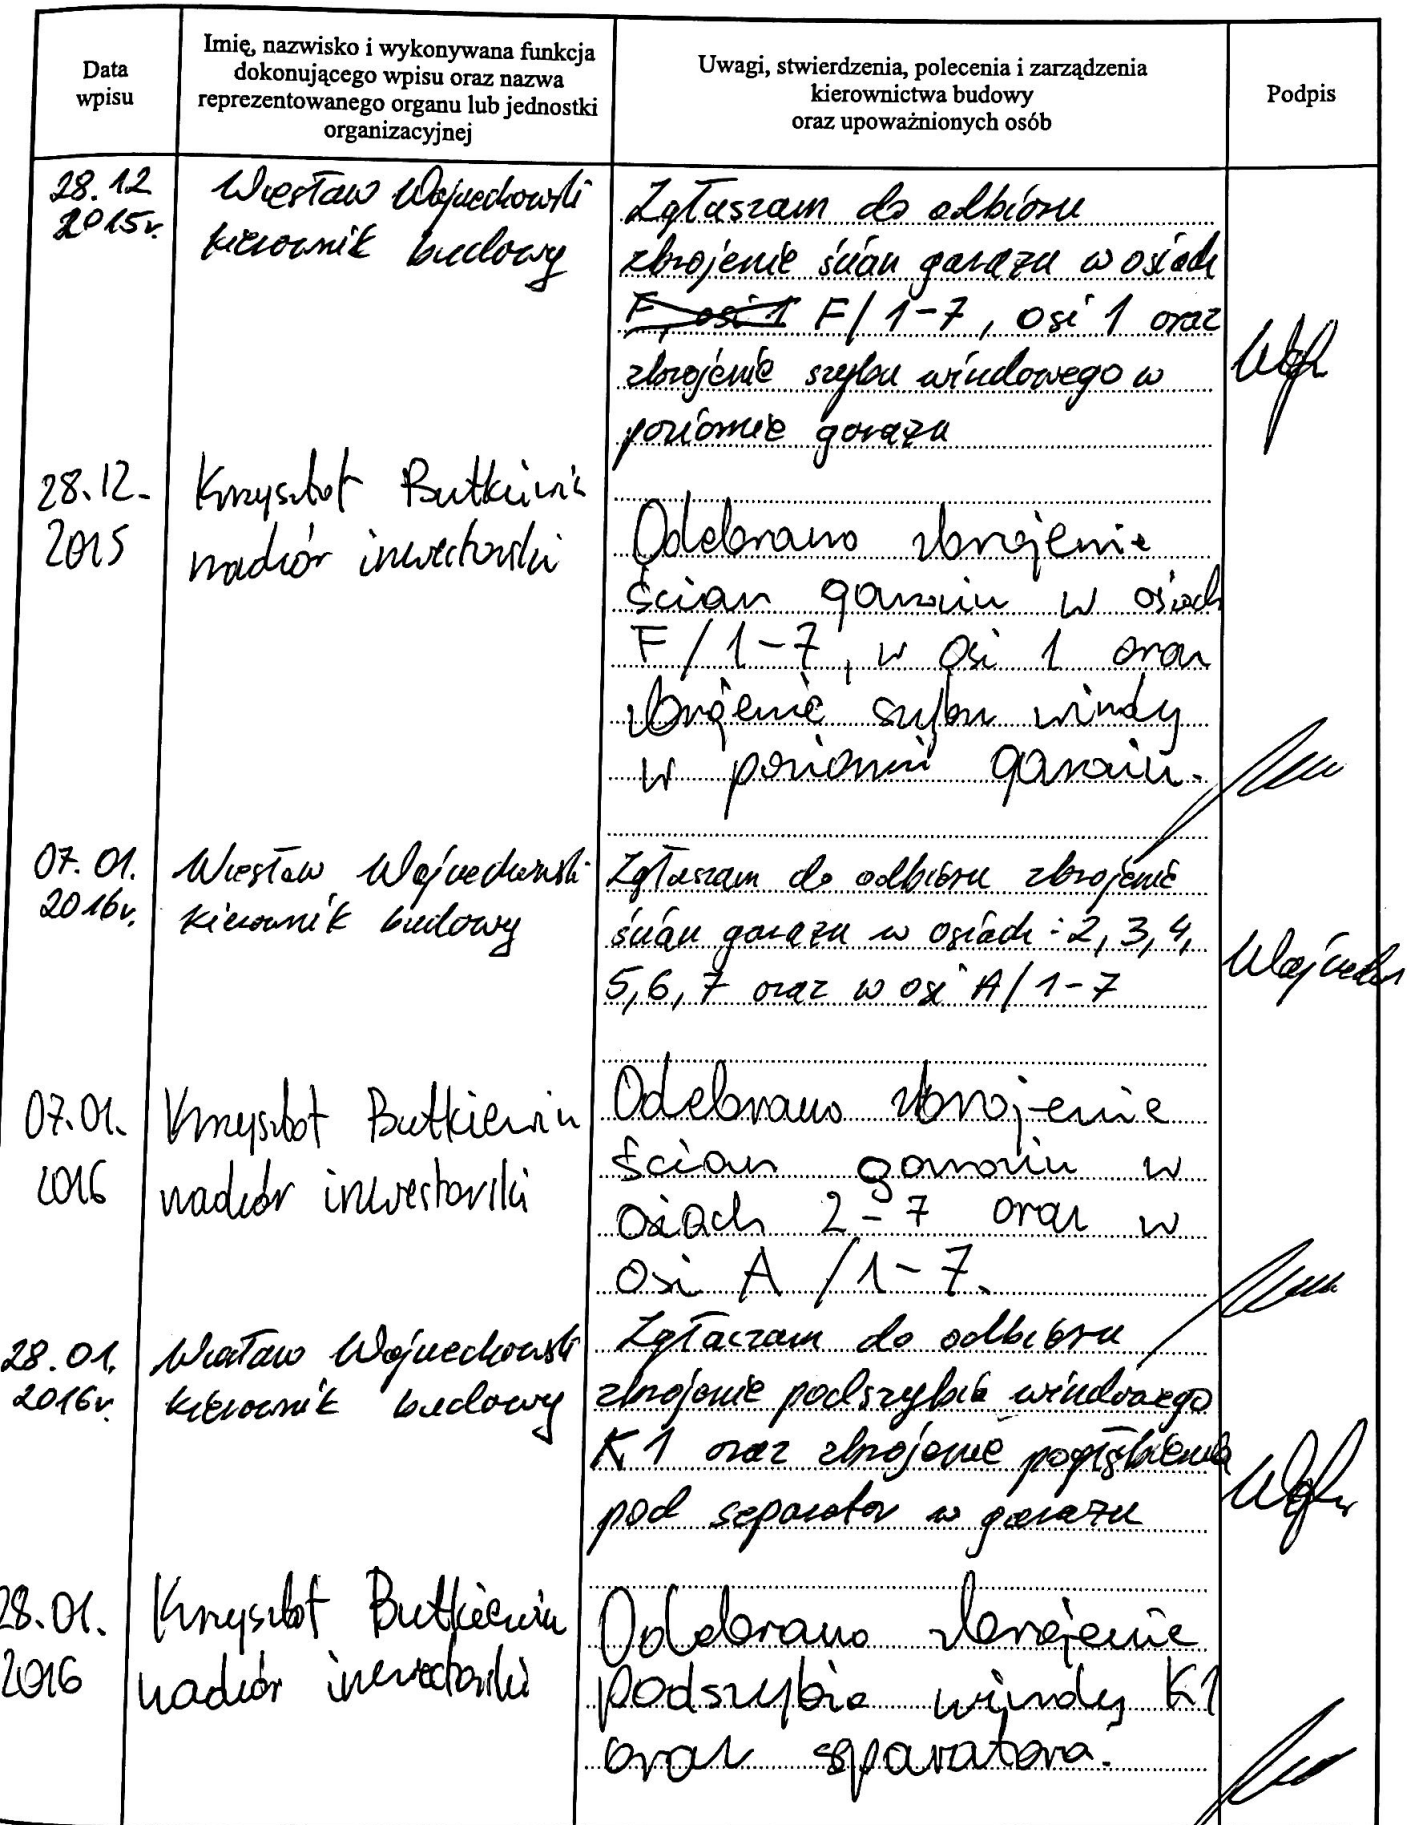 Data
wpisu
Imię, nazwisko i wykonywana funkcja
dokonującego wpisu oraz nazwa
reprezentowanego organu lub jednostki
organizacyjnej
Uwagi, stwierdzenia, polecenia i zarządzenia
kierownictwa budowy
oraz upoważnionych osób
Podpis
28.12
2015r.
Wiesław Wojciechowski
kierownik budowy
Zgłaszam do odbioru
zbrojenie ścian garażu w osiach
F, osi 1 F/1-7, osi 1 oraz
zbrojenie szybu windowego w
poziomie garażu
28.12.
2015
Krzysztof Butkiewicz
nadzór inwestorski
Odebrano zbrojenie
ścian garażu w osiach
F/1-7, w osi 1 oraz
zbrojenie szybu windy
w poziomie garażu.
07.01.
2016r.
Wiesław Wojciechowski
kierownik budowy
Zgłaszam do odbioru zbrojenie
ścian garażu w osiach: 2, 3, 4,
5, 6, 7 oraz w osi A/1-7
07.01.
2016
Krzysztof Butkiewicz
nadzór inwestorski
Odebrano zbrojenie
ścian garażu w
osiach 2-7 oraz w
osi A/1-7.
28.01.
2016r.
Wiesław Wojciechowski
kierownik budowy
Zgłaszam do odbioru
zbrojenie podszybia windowego
K1 oraz zbrojenie pogłębienia
pod separator w garażu
28.01.
2016
Krzysztof Butkiewicz
nadzór inwestorski
Odebrano zbrojenie
podszybia windy K1
oraz separatora.